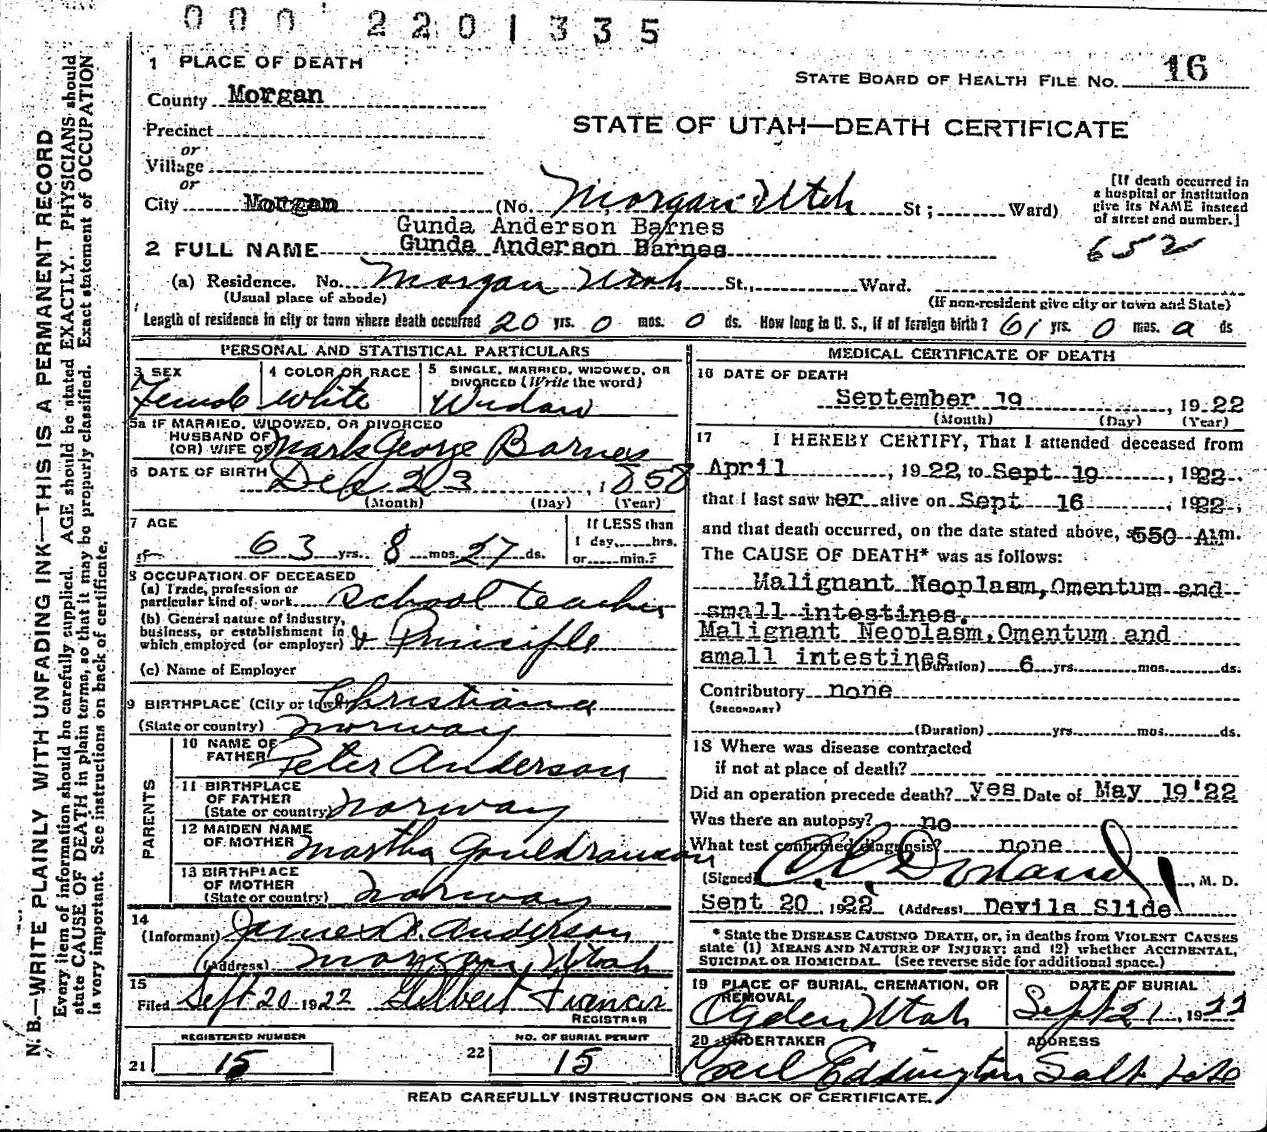 000 2201335
1 PLACE OF DEATH
STATE BOARD OF HEALTH FILE No. 16
County Morgan
STATE OF UTAH—DEATH CERTIFICATE
Precinct
or
Village
or
City Morgan (No. Morgan Utah St; Ward)
[If death occurred in
a hospital or institution
give its NAME instead
of street and number.]
652
Gunda Anderson Barnes
2 FULL NAME Gunda Anderson Barnes
(a) Residence. No. Morgan Utah St., Ward.
(Usual place of abode) (If non-resident give city or town and State)
Length of residence in city or town where death occurred 20 yrs. 0 mos. 0 ds. How long in U. S., if of foreign birth? 61 yrs. 0 mos. ds
PERSONAL AND STATISTICAL PARTICULARS
3 SEX 4 COLOR OR RACE 5 SINGLE, MARRIED, WIDOWED, OR
DIVORCED (Write the word)
Female white Widow
5a IF MARRIED, WIDOWED, OR DIVORCED
HUSBAND OF
(OR) WIFE OF Mark George Barnes
6 DATE OF BIRTH 23, 1858
(Month) (Day) (Year)
7 AGE If LESS than
1 day,......hrs.
63 yrs. 8 mos. 27 ds. or......min.?
8 OCCUPATION OF DECEASED
(a) Trade, profession or
particular kind of work School teacher
(b) General nature of industry,
business, or establishment in
which employed (or employer) & Principle
(c) Name of Employer
9 BIRTHPLACE (City or town) Christiana
(State or country) Norway
PARENTS
10 NAME OF
FATHER Peter Anderson
11 BIRTHPLACE
OF FATHER
(State or country) Norway
12 MAIDEN NAME
OF MOTHER Martha
13 BIRTHPLACE
OF MOTHER
(State or country) Norway
14
(Informant) James A. Anderson
(Address) Morgan, Utah
15
Filed Sept 20 1922 Gilbert Francis
REGISTRAR
REGISTERED NUMBER NO. OF BURIAL PERMIT
21 15 22 15
MEDICAL CERTIFICATE OF DEATH
16 DATE OF DEATH
September 19, 1922
(Month) (Day) (Year)
17 I HEREBY CERTIFY, That I attended deceased from
April, 1922, to Sept 19, 1922
that I last saw her alive on Sept 16, 1922
and that death occurred, on the date stated above, 550 A.m.
The CAUSE OF DEATH* was as follows:
Malignant Neoplasm, Omentum and
small intestines.
Malignant Neoplasm, Omentum and
small intestines (Duration) 6 yrs. mos. ds.
Contributory none
(SECONDARY)
(Duration) yrs. mos. ds.
18 Where was disease contracted
if not at place of death?
Did an operation precede death? yes Date of May 19 '22
Was there an autopsy? no
What test confirmed diagnosis? none
(Signed) , M. D.
Sept 20 1922 (Address) Devils Slide
* State the DISEASE CAUSING DEATH, or, in deaths from VIOLENT CAUSES
state (1) MEANS AND NATURE OF INJURY; and (2) whether ACCIDENTAL,
SUICIDAL OR HOMICIDAL. (See reverse side for additional space.)
19 PLACE OF BURIAL, CREMATION, OR
REMOVAL DATE OF BURIAL
Ogden Utah Sept 21, 1922
20 UNDERTAKER ADDRESS
Carl Eddington Salt Lake
READ CAREFULLY INSTRUCTIONS ON BACK OF CERTIFICATE.
N. B.—WRITE PLAINLY WITH UNFADING INK—THIS IS A PERMANENT RECORD
Every item of information should be carefully supplied. AGE should be stated EXACTLY. PHYSICIANS should
state CAUSE OF DEATH in plain terms, so that it may be properly classified. Exact statement of OCCUPATION
is very important. See instructions on back of certificate.